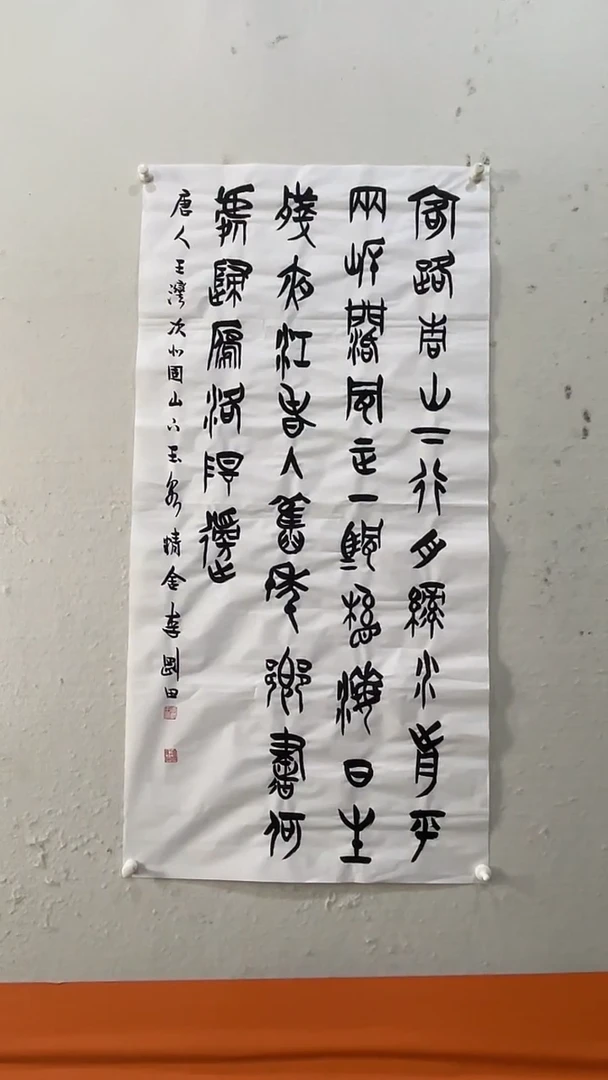 客路青山下行舟綠水前平
兩岸闊風正一帆懸海日生
殘夜江春入舊年鄉書何
歸雁洛陽邊
唐人王灣次北固山下李剛田